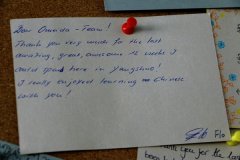 Dear Omeida - Team!
Thank you very much for the last
amazing, great, awesome 12 weeks I
could spend here in Yangshuo!
I really enjoyed learning Chinese
with you!
Flo